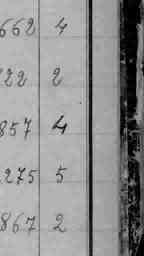 662 4
22 2
857 4
275 5
867 2